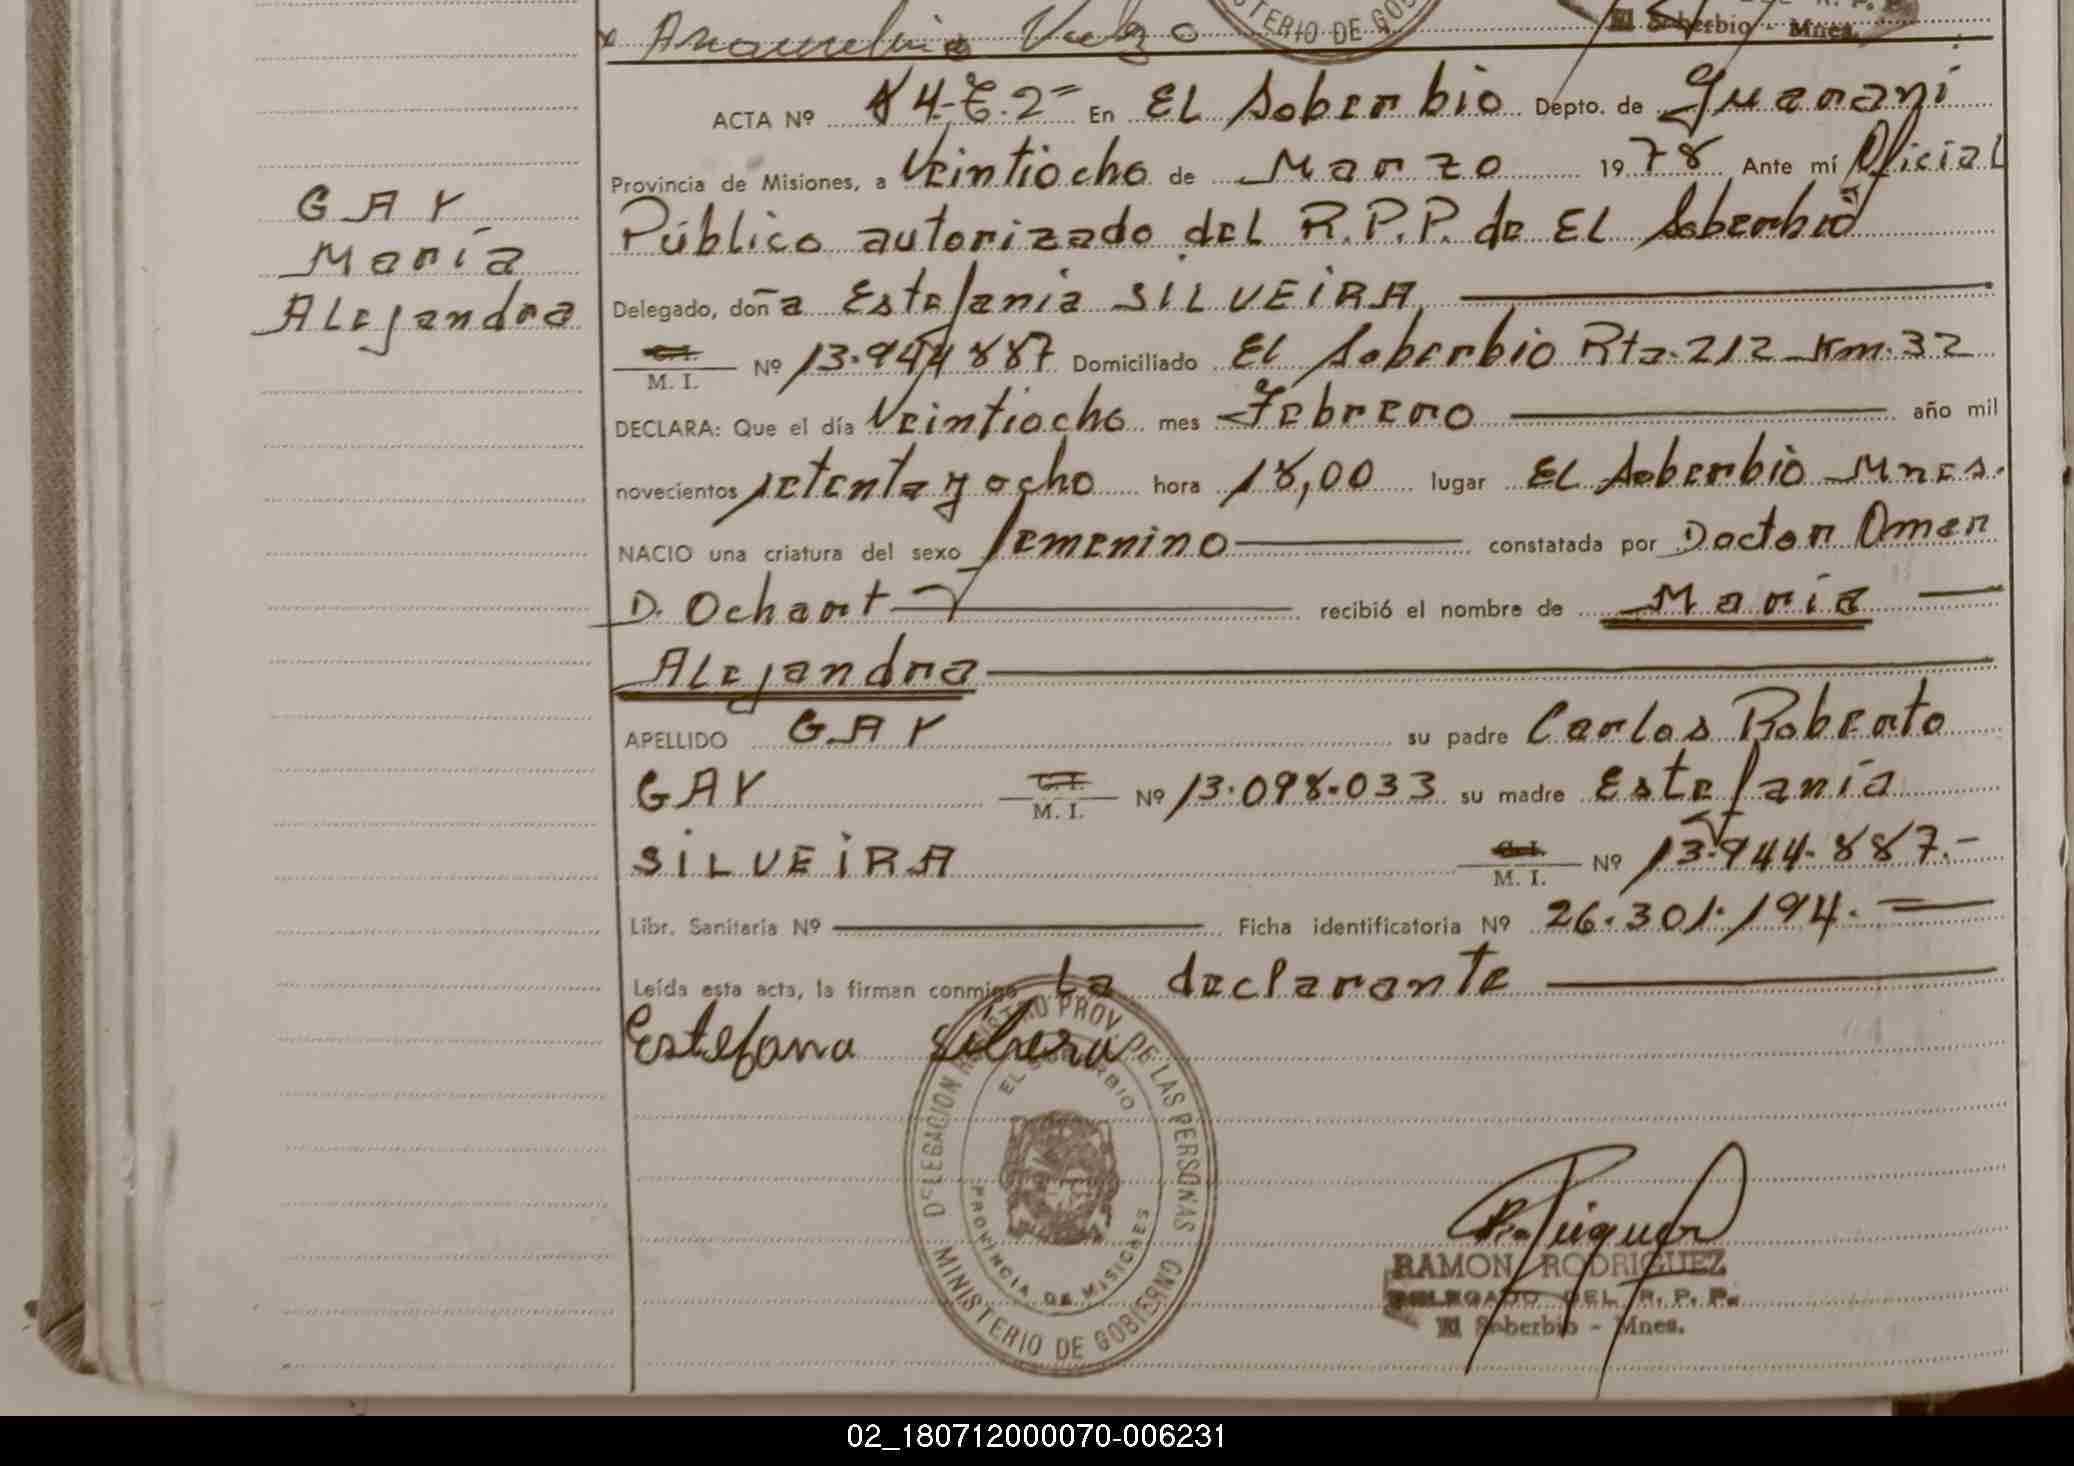 x Anamelina
MINISTERIO DE GOBIERNO
El Soberbio - Mnes.
ACTA Nº 14-T.2= En EL Soberbio Depto. de Guaraní
Provincia de Misiones, a Veintiocho de Marzo 1978 Ante mí Oficial
Público autorizado del R.P.P. de EL Soberbio
Delegado, doña Estefania SILVEIRA
C.I.
M. I. Nº 13.944887 Domiciliado El Soberbio Rta.212 Km.32
DECLARA: Que el día Veintiocho mes Febrero año mil
novecientos setenta y ocho hora 18,00 lugar EL Soberbio Mnes.
NACIO una criatura del sexo femenino constatada por Doctor Omar
D. Ochart recibió el nombre de María
Alejandra
APELLIDO GAY su padre Carlos Roberto
GAY C.I.
M. I. Nº 13.098.033 su madre Estefanía
SILVEIRA C.I.
M. I. Nº 13.944.887.-
Libr. Sanitaria Nº Ficha identificatoria Nº 26.301.194.=
Leída esta acta, la firman conmigo La declarante
Estefana Silvera
GAY
María
Alejandra
DELEGACION REGISTRO PROV. DE LAS PERSONAS
EL SOBERBIO
PROVINCIA DE MISIONES
MINISTERIO DE GOBIERNO
RAMON RODRIGUEZ
DELEGADO DEL R. P. P.
El Soberbio - Mnes.
02_180712000070-006231